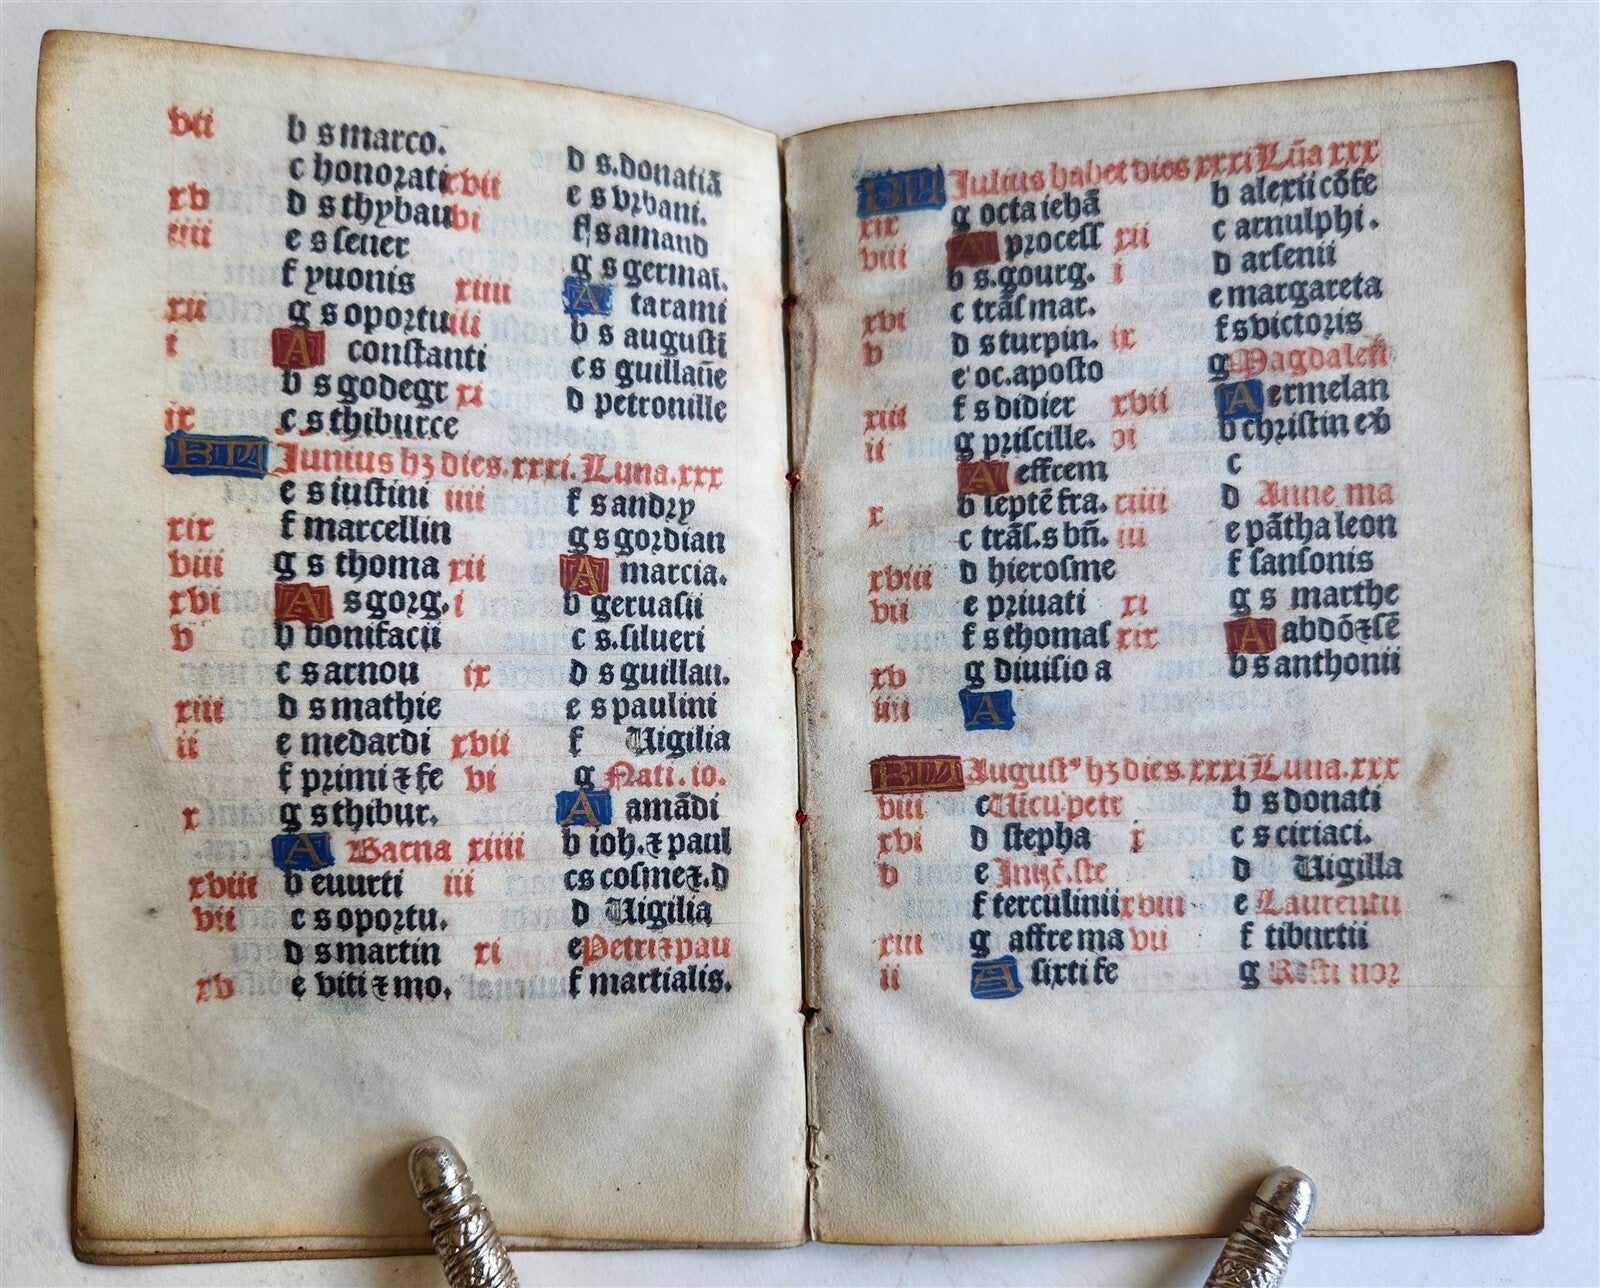 vii b s marco.
c honorati
xv d s thybau
iiii e s sever
f yuonis
xii g s oportu
i A constanti
b s godegr
ix c s thiburce
xvii d s.donatiã
vi e s vrbani.
f s amand
g s germai.
xiiii A tarami
iii b s augusti
c s guillaũe
xi d petronille
Junius hꝫ dies.xxxi.Luna.xxx
e s iustini
xix f marcellin
viii g s thoma
xvi A s gorg.
v b bonifacii
c s arnou
xiii d s mathie
ii e medardi
f primi ⁊ fe
x g s thibur.
A Barna
xviii b euurti
vii c s oportu.
d s martin
xv e viti ⁊ mo.
iiii f s andry
g s gordian
xii A marcia.
i b geruasii
c s.silueri
ix d s guillau.
e s paulini
xvii f Uigilia
vi g Nati.io.
A amãdi
xiiii b ioh.⁊ paul
iii c s cosme⁊.d
d Uigilia
xi e Petri⁊pau
f martialis.
Julius habet dies xxxi Lũa xxx
xix g octa iehã
viii A process
b s.gourg.
xvi c trãs mar.
v d s turpin.
e oc.aposto
xiii f s didier
ii g priscille.
A effrem
x b septẽ fra.
c trãs.s bñ.
xviii d hierosme
vii e priuati
f s thomas
xv g diuisio a
iiii A
b alexii cõfe
xii c arnulphi.
i d arsenii
e margareta
ix f s victoris
g Magdalen
xvii A ermelan
vi b christin
c
xiiii d Anne ma
iii e pãthaleon
f sansonis
xi g s marthe
xix A abdõ⁊sẽ
b s anthonii
August⁹ hꝫ dies.xxxi Luna.xxx
viii c Uĩcu petr
xvi d stepha
v e
f terculinii
xiii g affre ma
ii A sixti fe
b s donati
x c s ciriaci.
d Uigilla
xviii e Laurentii
vii f tiburtii
g